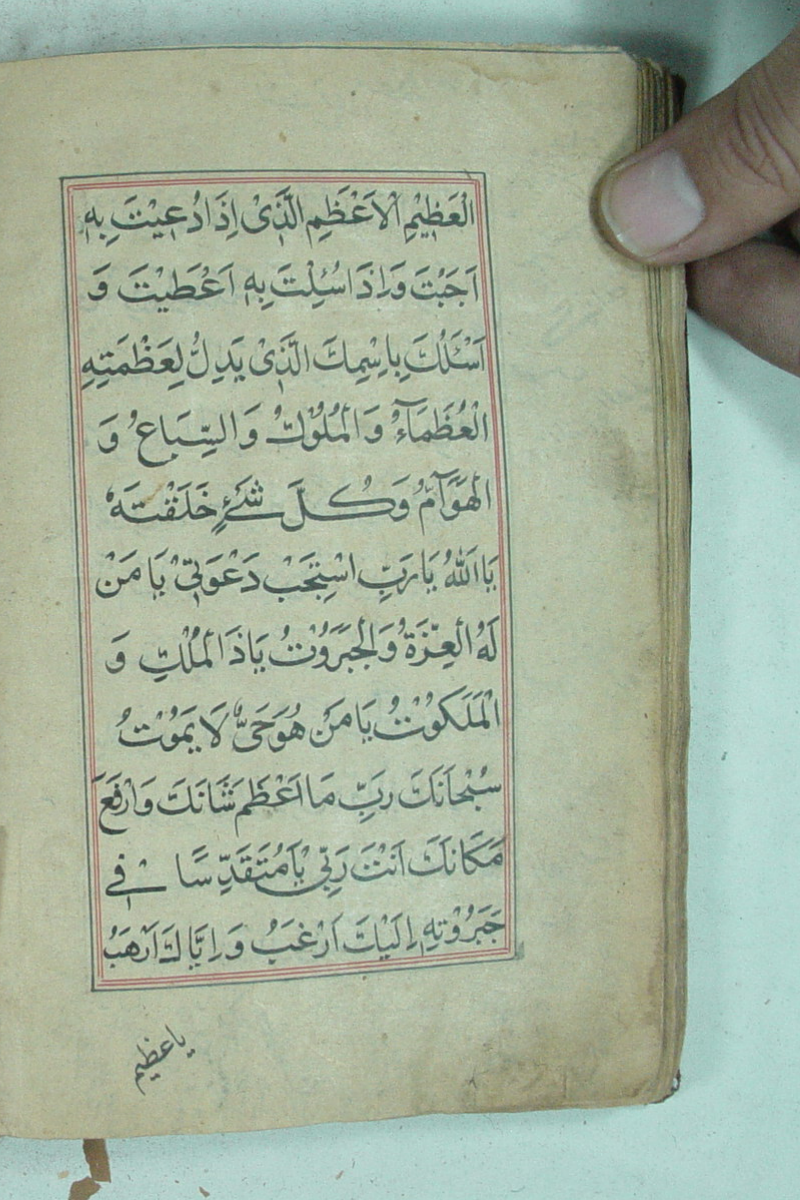 الْعَظِيْمِ الْاَعْظَمِ الَّذِىْ اِذَا دُعِيْتَ بِهٖ
اَجَبْتَ وَ اِذَا سُئِلْتَ بِهٖ اَعْطَيْتَ وَ
اَسْئَلُكَ بِاسْمِكَ الَّذِىْ يَدِلُّ لِعَظْمَتِهِ
الْعُظَمَآءُ وَ الْمُلُوْكُ وَ السِّبَاعُ وَ
الْهَوَّآمُّ وَ كُلَّ شَىْءٍ خَلَقْتَهٗ
يَا اَللّٰهُ يَا رَبِّ اسْتَجِبْ دَعْوَتِىْ يَا مَنْ
لَهُ الْعِزَّةُ وَ الْجَبَرُوْتُ يَا ذَا الْمُلْكِ وَ
الْمَلَكُوْتُ يَا مَنْ هُوَ حَىٌّ لَا يَمُوْتُ
سُبْحَانَكَ رَبِّ مَا اَعْظَمَ شَانَكَ وَ ارْفَعَ
مَكَانَكَ اَنْتَ رَبِّىْ يَا مُتَقَدِّسًا فِىْ
جَبَرُوْتِهِ اِلَيْكَ اَرْغَبُ وَ اِيَّاكَ اَرْهَبُ
يا عظيم